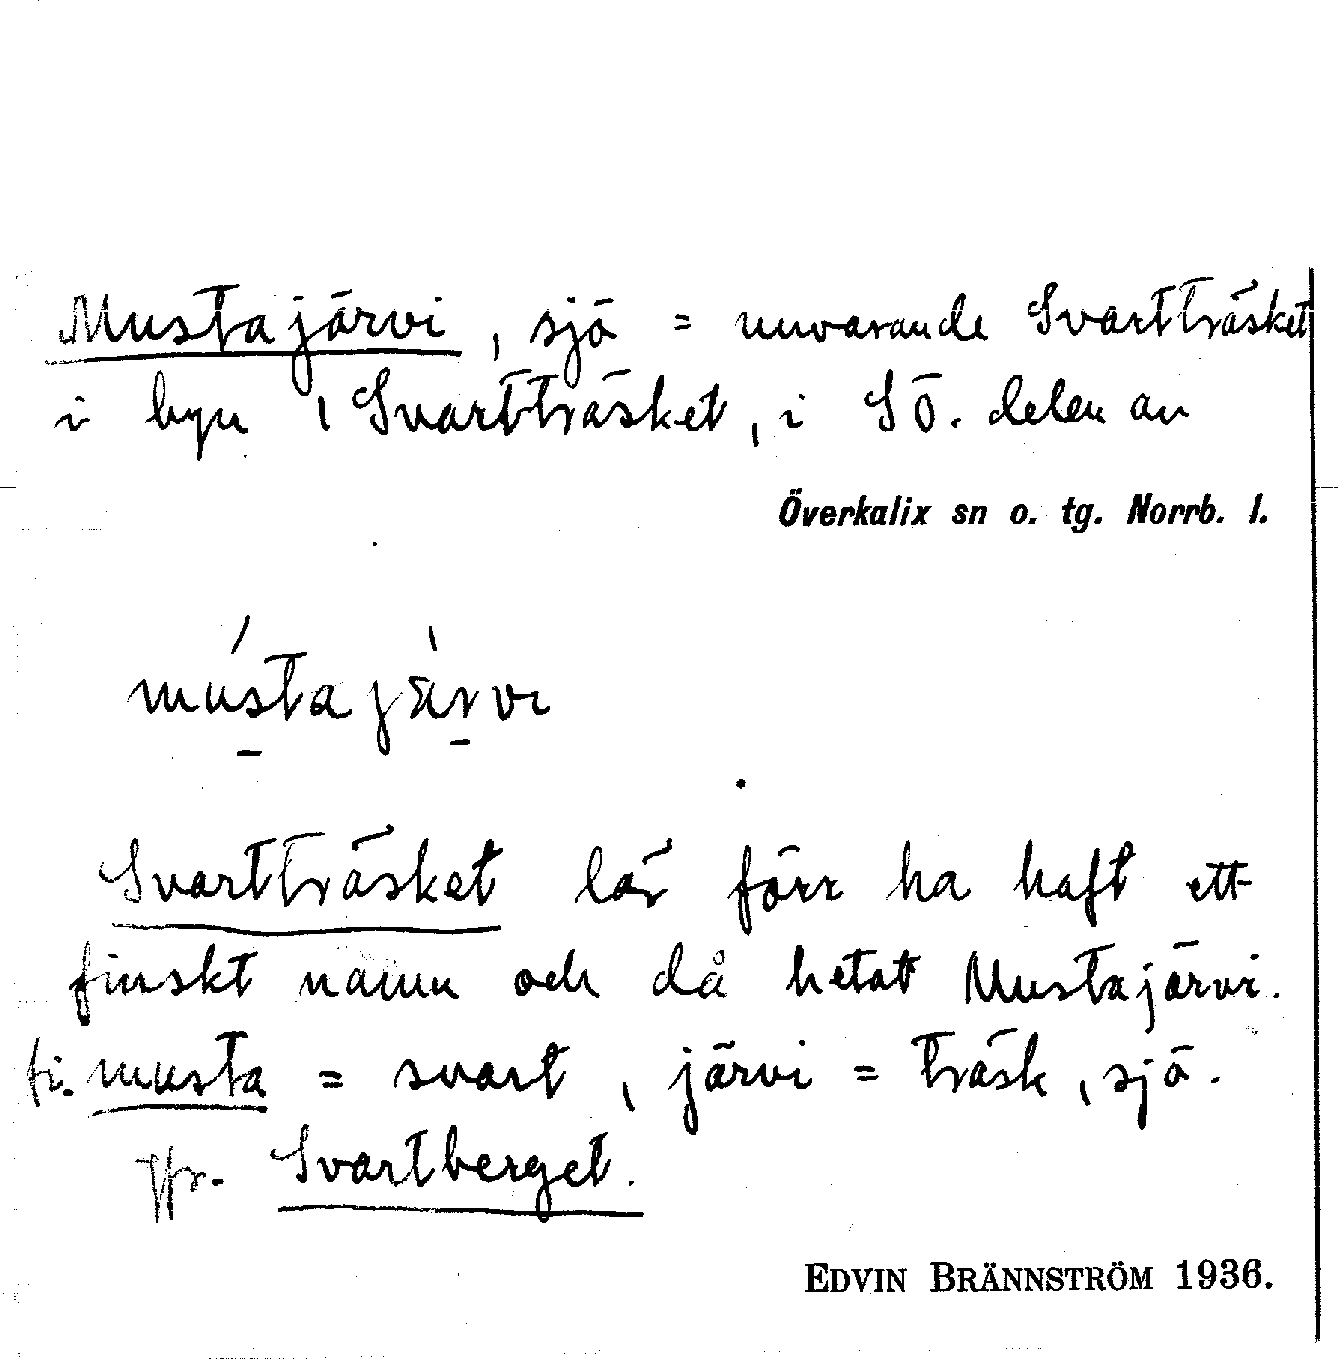 Mustajärvi, sjö = nuvarande Svartträsket
i byn Svartträsket, i SÖ. delen av
Överkalix sn o. tg. Norrb. l.
mu̱stajä̱rvi
Svartträsket lär förr ha haft ett
finskt namn och då hetat Mustajärvi.
fi. musta = svart, järvi = träsk, sjö.
Jfr. Svartberget.
EDVIN BRÄNNSTRÖM 1936.